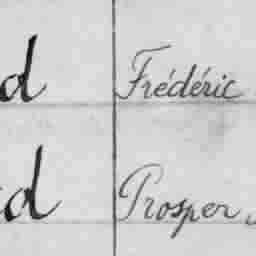 d Frédéric
d Prosper